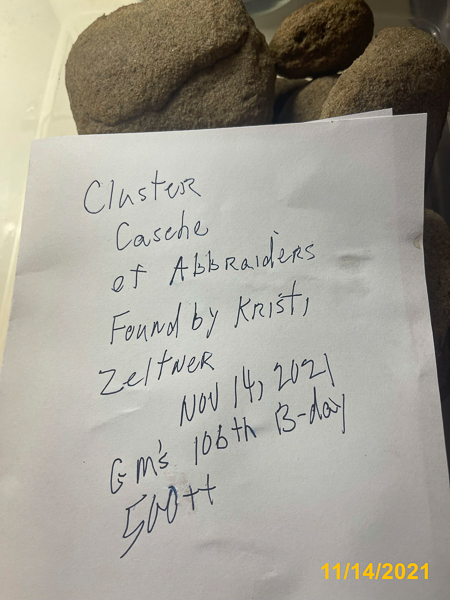 Cluster
Casche
of Abbraiders
Found by Kristi
Zeltner
Nov 14, 2021
GM's 106th B-day
500++
11/14/2021